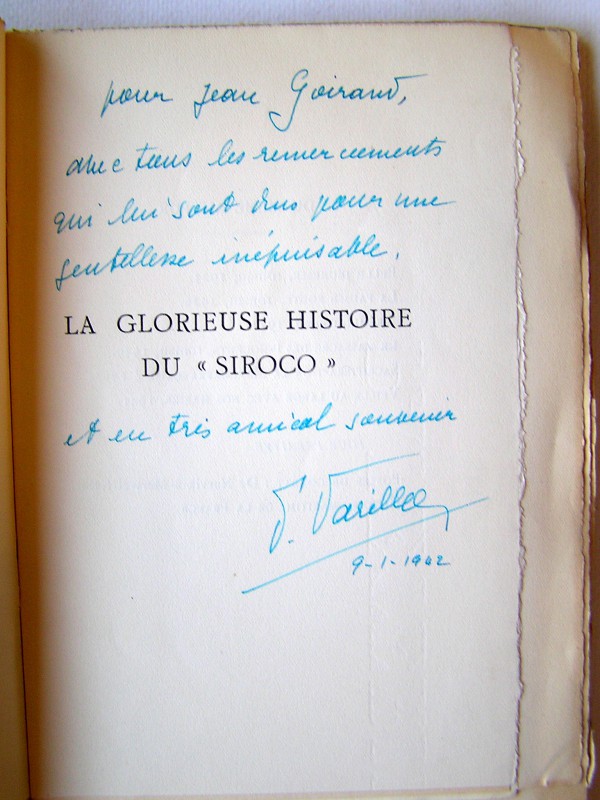 pour Jean Goirand,
avec tous les remerciements
qui lui sont dus pour une
gentillesse inépuisable,
LA GLORIEUSE HISTOIRE
DU « SIROCO »
et en très amical souvenir
9-1-1942